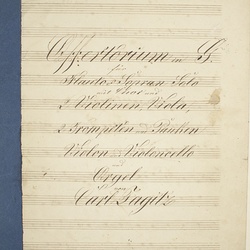 Offertorium in G.
für
Flauto, Sopran Solo
mit Chor und
2 Violinen, Viola,
2 Trompeten und Pauken
Violon und Violoncello
und
Orgel
von
Carl Pagitz